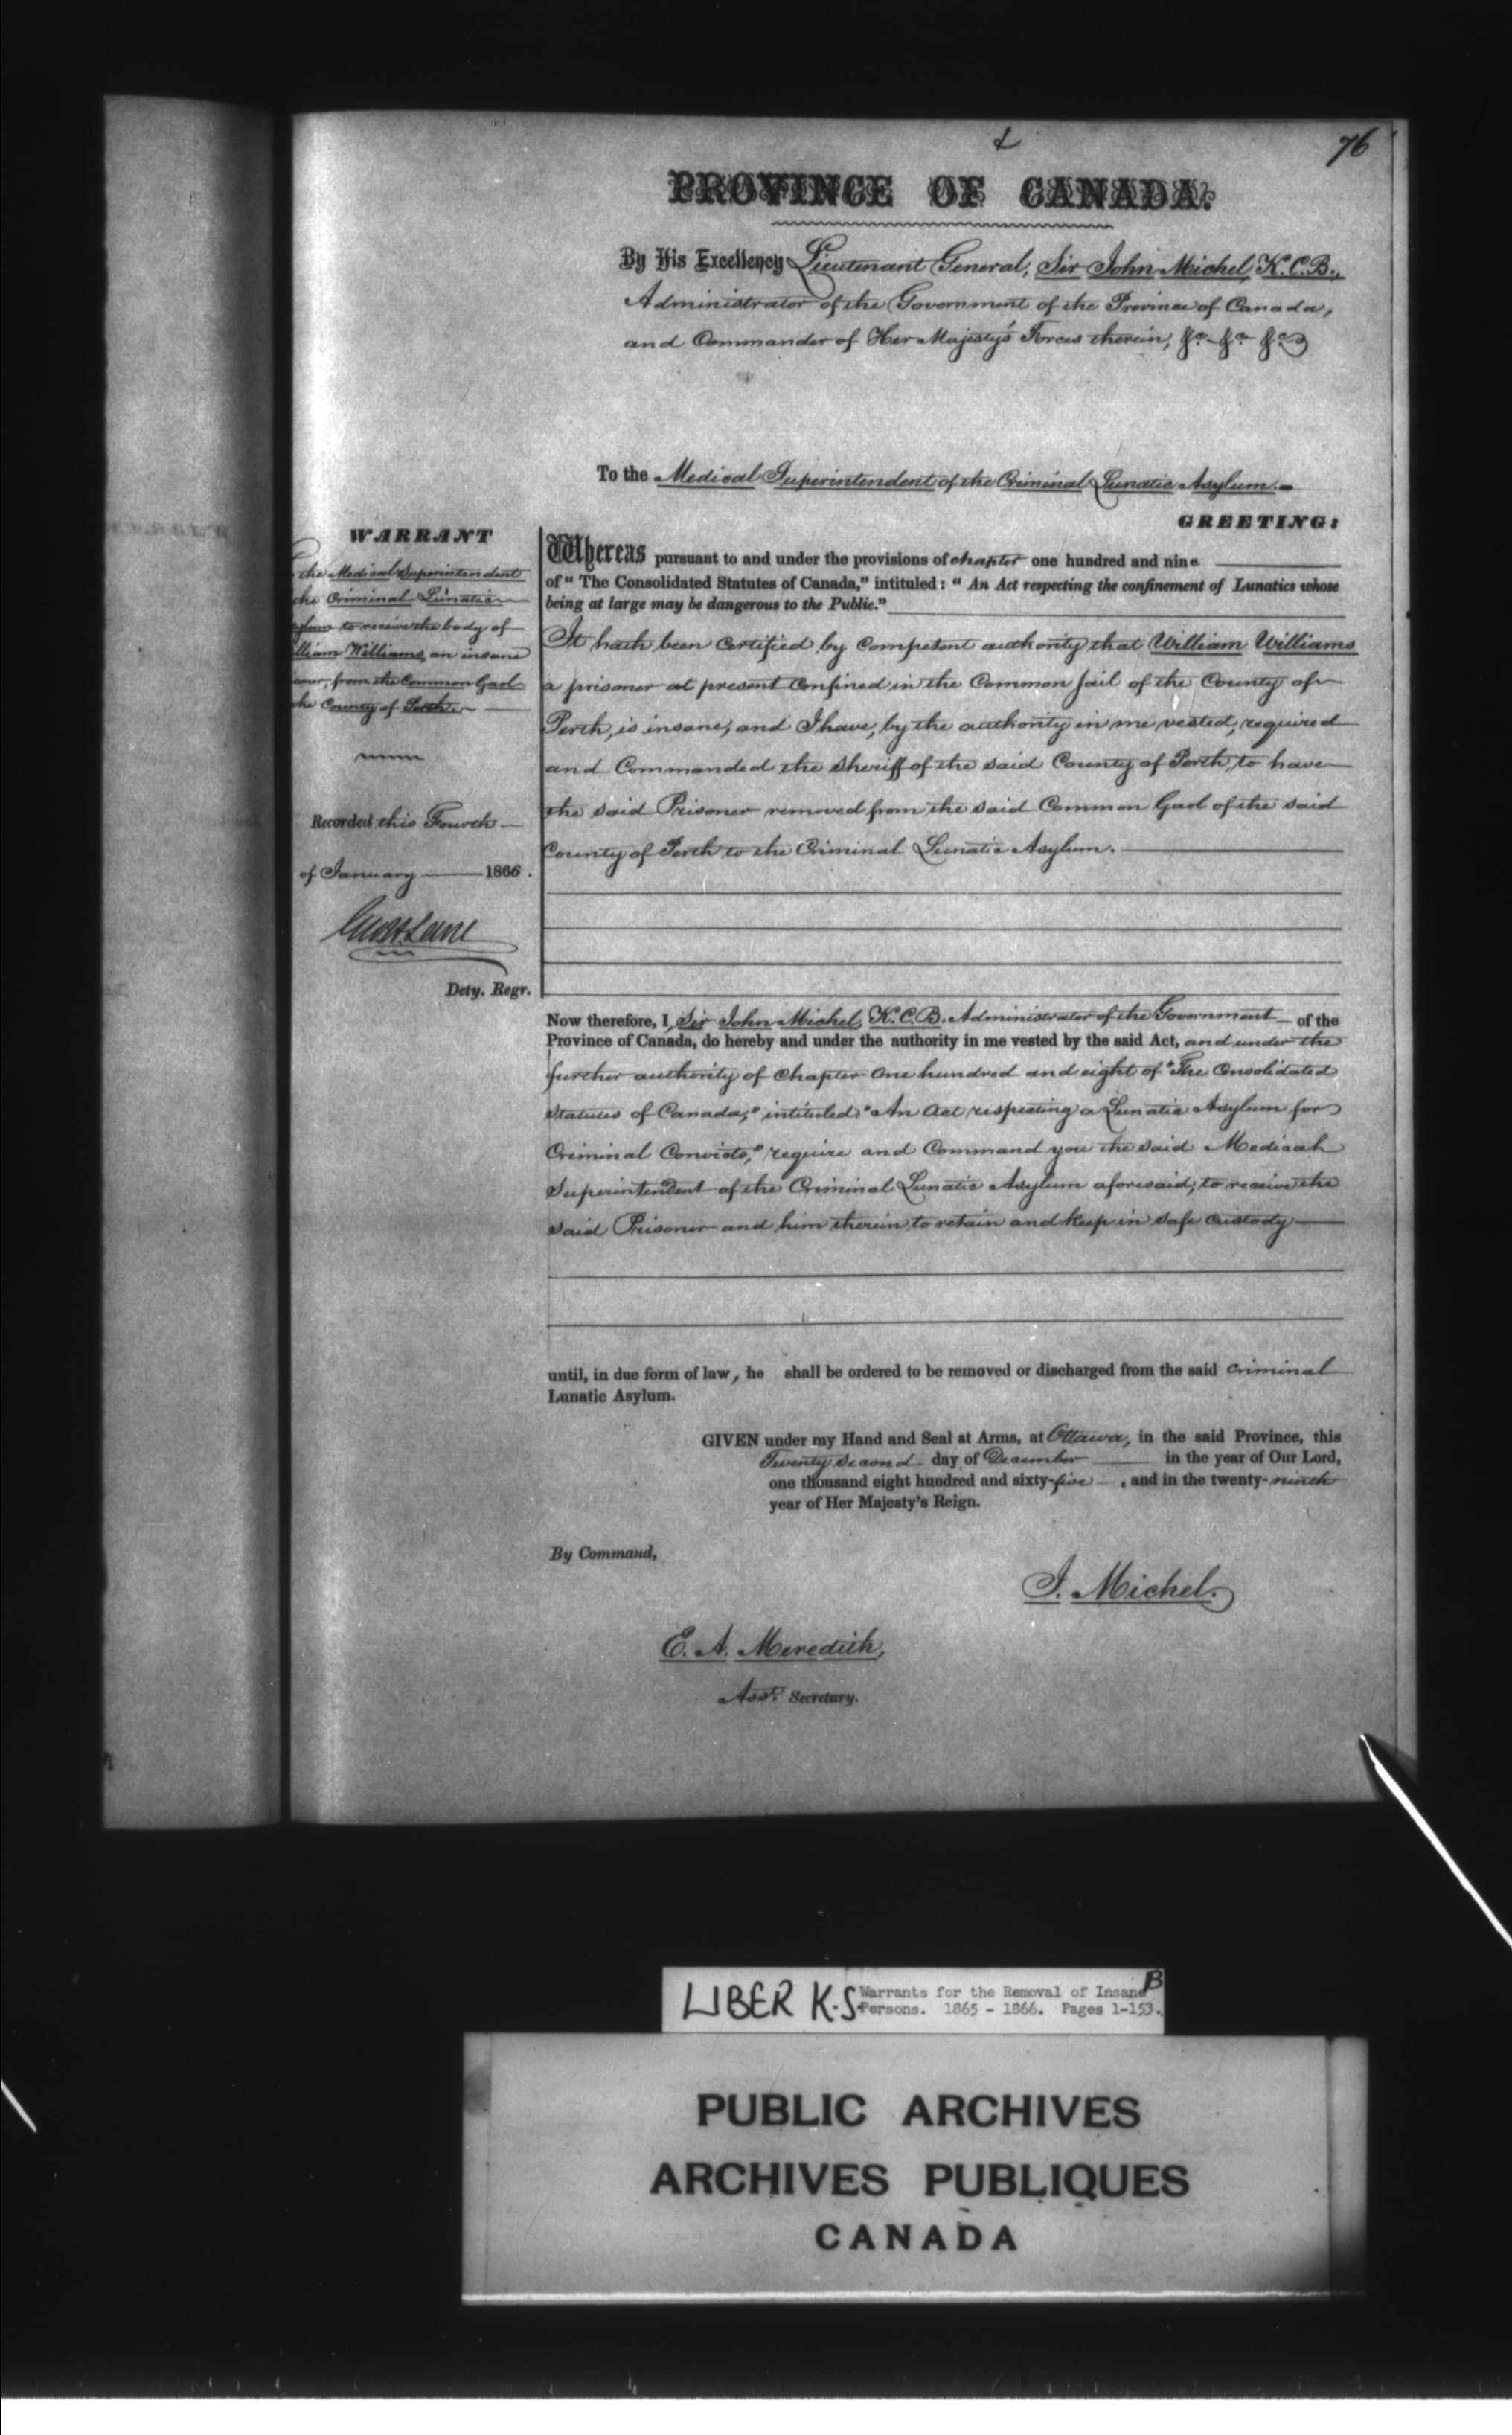 76
PROVINCE OF CANADA.
By His Excellency Lieutenant General, Sir John Michel, K.C.B.,
Administrator of the Government of the Province of Canada,
and Commander of Her Majesty's Forces therein, &c. &c. &c.
To the Medical Superintendent of the Criminal Lunatic Asylum.
GREETING:
WARRANT
the Medical Superintendent
the Criminal Lunatic
ylum to receive the body of
illiam Williams, an insane
soner, from the Common Gaol
the County of Perth.
Recorded this Fourth
of January 1866.
Dety. Regr.
Whereas pursuant to and under the provisions of chapter one hundred and nine
of "The Consolidated Statutes of Canada," intituled: "An Act respecting the confinement of Lunatics whose
being at large may be dangerous to the Public."
It hath been certified by competent authority that William Williams
a prisoner at present confined in the Common Jail of the County of
Perth, is insane, and I have, by the authority in me vested, required
and Commanded the Sheriff of the said County of Perth, to have
the said Prisoner removed from the said Common Gaol of the said
County of Perth to the Criminal Lunatic Asylum.
Now therefore, I, Sir John Michel, K.C.B. Administrator of the Government of the
Province of Canada, do hereby and under the authority in me vested by the said Act, and under the
further authority of Chapter One hundred and eight of "The Consolidated
Statutes of Canada," intituled "An Act respecting a Lunatic Asylum for
Criminal Convicts," require and Command you the said Medical
Superintendent of the Criminal Lunatic Asylum aforesaid, to receive the
said Prisoner and him therein to retain and keep in safe custody
until, in due form of law, he shall be ordered to be removed or discharged from the said Criminal
Lunatic Asylum.
GIVEN under my Hand and Seal at Arms, at Ottawa, in the said Province, this
Twenty second day of December in the year of Our Lord,
one thousand eight hundred and sixty-five, and in the twenty-ninth
year of Her Majesty's Reign.
By Command,
J. Michel.
E. A. Meredith,
Asst. Secretary.
LIBER K.S. Warrants for the Removal of Insane B
Persons. 1865 - 1866. Pages 1-153.
PUBLIC ARCHIVES
ARCHIVES PUBLIQUES
CANADA